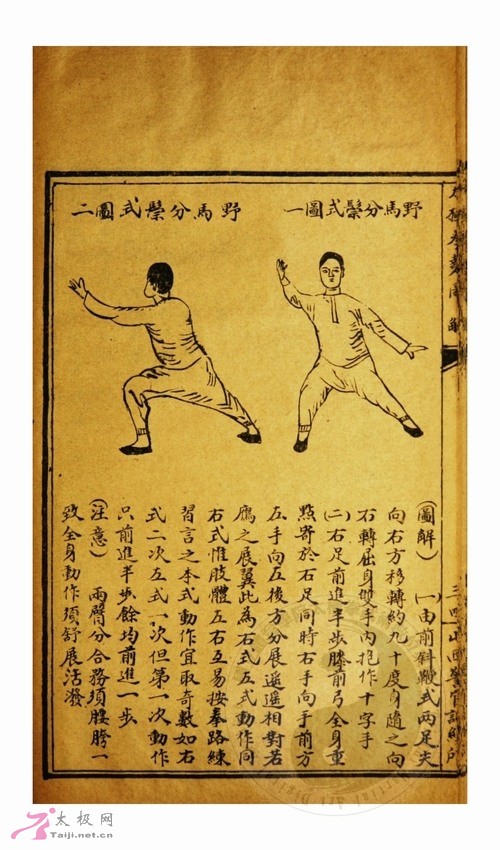 野馬分鬃式圖一
野馬分鬃式圖二
(圖解) (一)由前斜鞭式兩足尖
向右方移轉約九十度身隨之向
右轉屈身雙手內抱作十字手
(二)右足前進半步膝前弓全身重
點寄於右足同時右手向于前方
左手向左後方分展遥遥相對若
鷹之展翼此為右式左式動作同
右式惟肢體左右互易按拳路練
習言之本式動作宜取奇數如右
式二次左式一次但第一次動作
只前進半步餘均前進一步
(注意) 兩臂分合務須腰胯一
致全身動作須舒展活潑
太极网
Taiji.net.cn